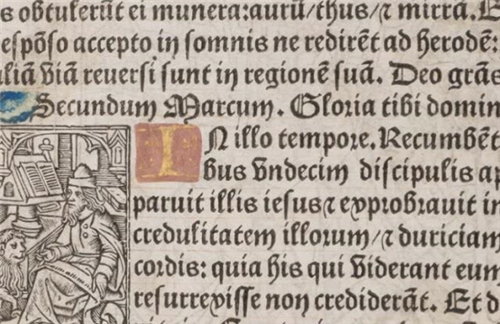 s obtulerūt ei munera: aurū/thus/⁊ mirrā. E
espōso accepto in somnis ne redirēt ad herodē:
uliā viā reuersi sunt in regionē suā. Deo grāt
Secundum Marcum. Gloria tibi domin
IN illo tempore. Recumbēt
bus vndecim discipulis ap
paruit illis iesus ⁊ exprobrauit in
credulitatem illorum/⁊ duriciam
cordis: quia his qui viderant eum
resurrexisse non crediderāt. Et d